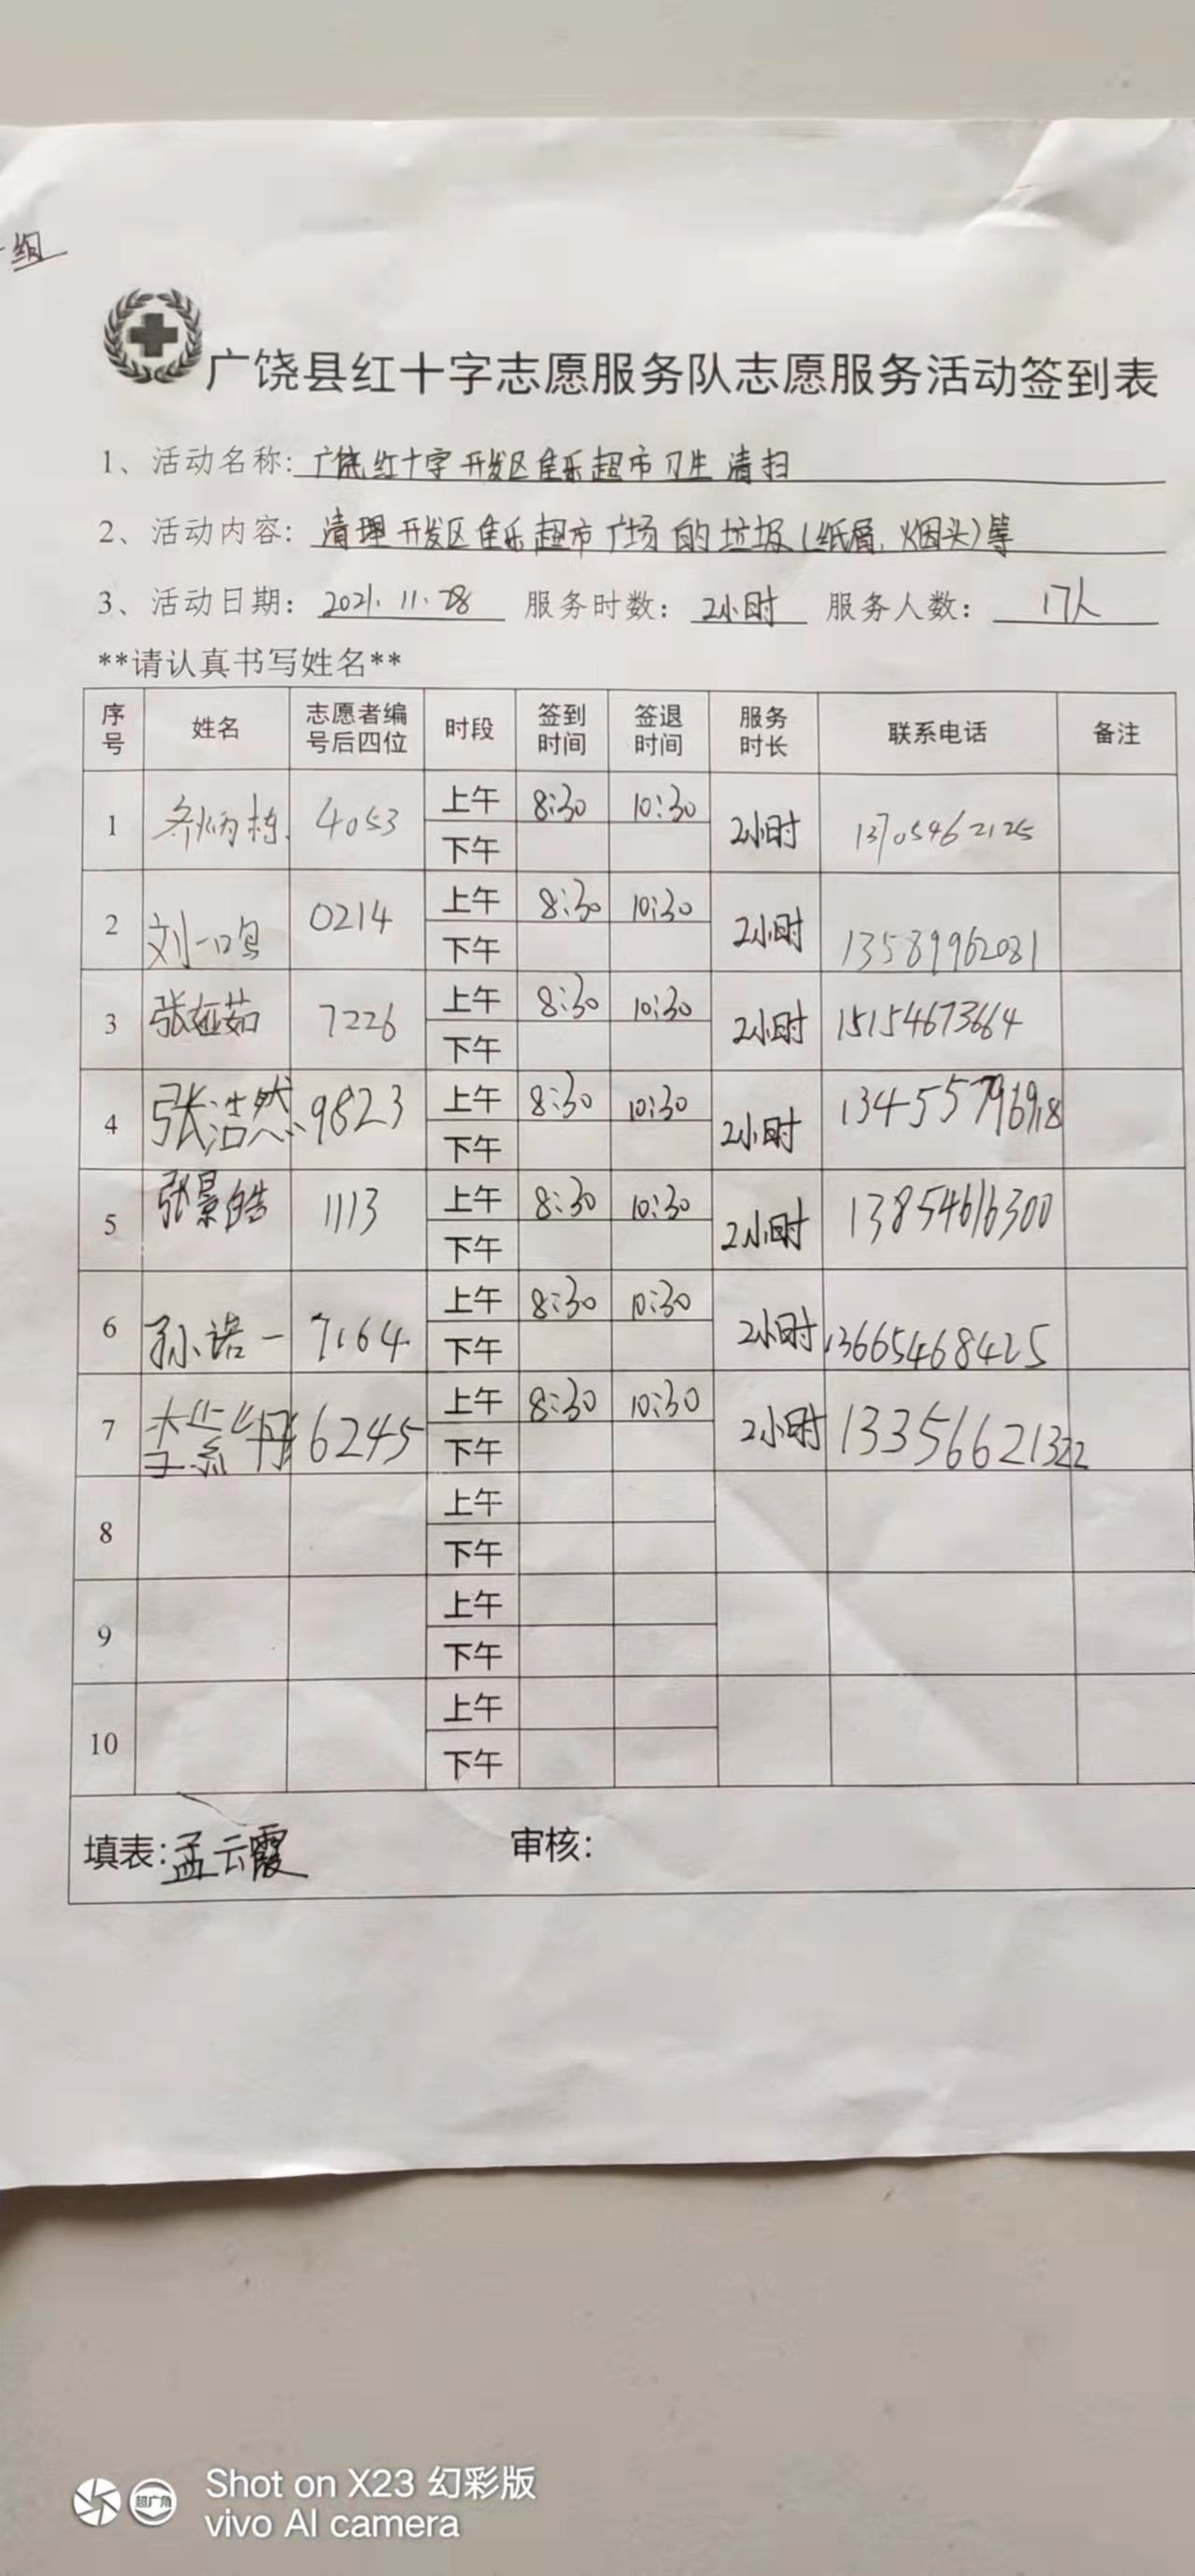 组
广饶县红十字志愿服务队志愿服务活动签到表
1、活动名称: 广饶红十字开发区佳乐超市卫生清扫
2、活动内容: 清理开发区佳乐超市广场的垃圾(纸屑、烟头)等
3、活动日期: 2021.11.28 服务时数: 2小时 服务人数: 17人
**请认真书写姓名**
序号 姓名 志愿者编号后四位 时段 签到时间 签退时间 服务时长 联系电话 备注
1 炳栋 4053 上午 8:30 10:30 2小时 13705462125
下午
2 刘一鸣 0214 上午 8:30 10:30 2小时 13589962081
下午
3 张娅茹 7226 上午 8:30 10:30 2小时 15154673664
下午
4 张浩然 9823 上午 8:30 10:30 2小时 13455579698
下午
5 张景皓 1113 上午 8:30 10:30 2小时 13854616300
下午
6 孙诺一 7164 上午 8:30 10:30 2小时 13665468425
下午
7 李紫丹 6245 上午 8:30 10:30 2小时 13356621322
下午
8 上午
下午
9 上午
下午
10 上午
下午
填表: 孟云霞 审核:
超广角
Shot on X23 幻彩版
vivo AI camera